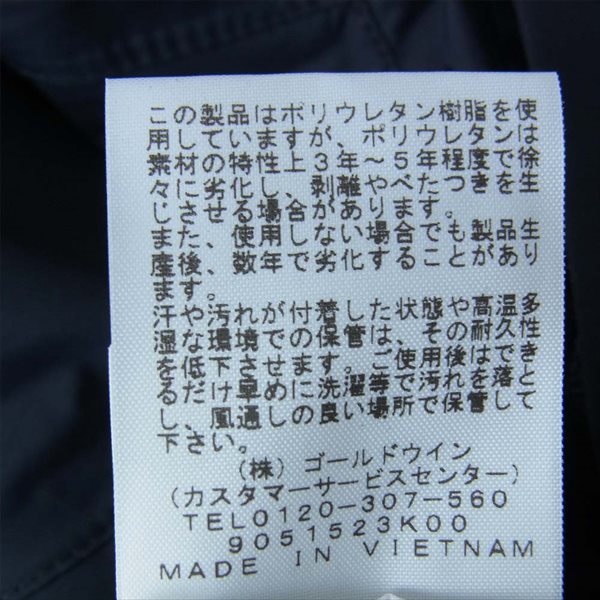 この製品はポリウレタン樹脂を使
用していますが、ポリウレタンは
素材の特性上3年～5年程度で徐
々に劣化し、剥離やべたつきを生
じさせる場合があります。
また、使用しない場合でも製品生
産後、数年で劣化することがあり
ます。
汗や汚れが付着した状態や高温多
湿な環境での保管は、その耐久性
を低下させます。ご使用後はでき
るだけ早めに洗濯等で汚れを落と
し、風通しの良い場所で保管して
下さい。
(株) ゴールドウイン
(カスタマーサービスセンター)
TEL0120-307-560
9051523K00
MADE IN VIETNAM